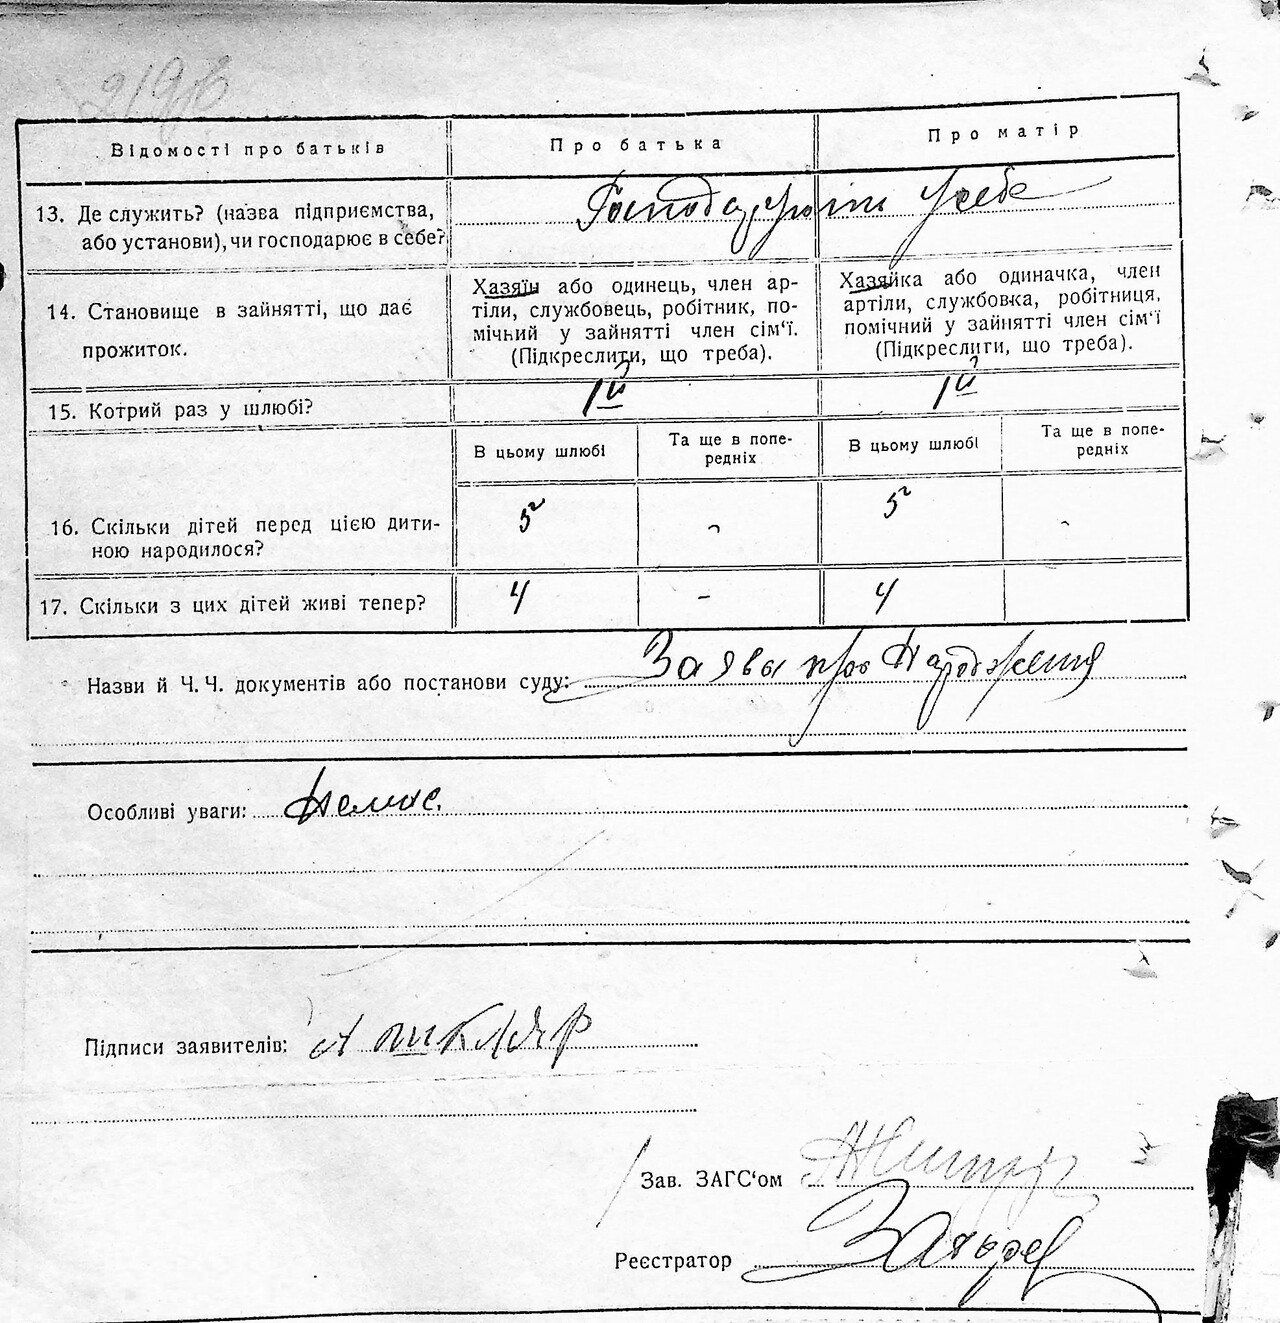 Відомості про батьків
Про батька
Про матір
13. Де служить? (назва підприємства,
або установи), чи господарює в себе?
Господарюють у себе
14. Становище в зайнятті, що дає
прожиток.
Хазяїн або одинець, член ар-
тіли, службовець, робітник, по-
мічний у зайнятті член сім'ї.
(Підкреслити, що треба).
Хазяйка або одиначка, член
артіли, службовка, робітниця,
помічний у зайнятті член сім'ї
(Підкреслити, що треба).
15. Котрий раз у шлюбі?
1й
1й
В цьому шлюбі
Та ще в попе-
редніх
В цьому шлюбі
Та ще в попе-
редніх
16. Скільки дітей перед цією дити-
ною народилося?
5
-
5
-
17. Скільки з цих дітей живі тепер?
4
-
4
Назви й Ч. Ч. документів або постанови суду: Заява про Народження
Особливі уваги: Немає.
Підписи заявителів: А шкляр
Зав. ЗАГС'ом
Реєстратор